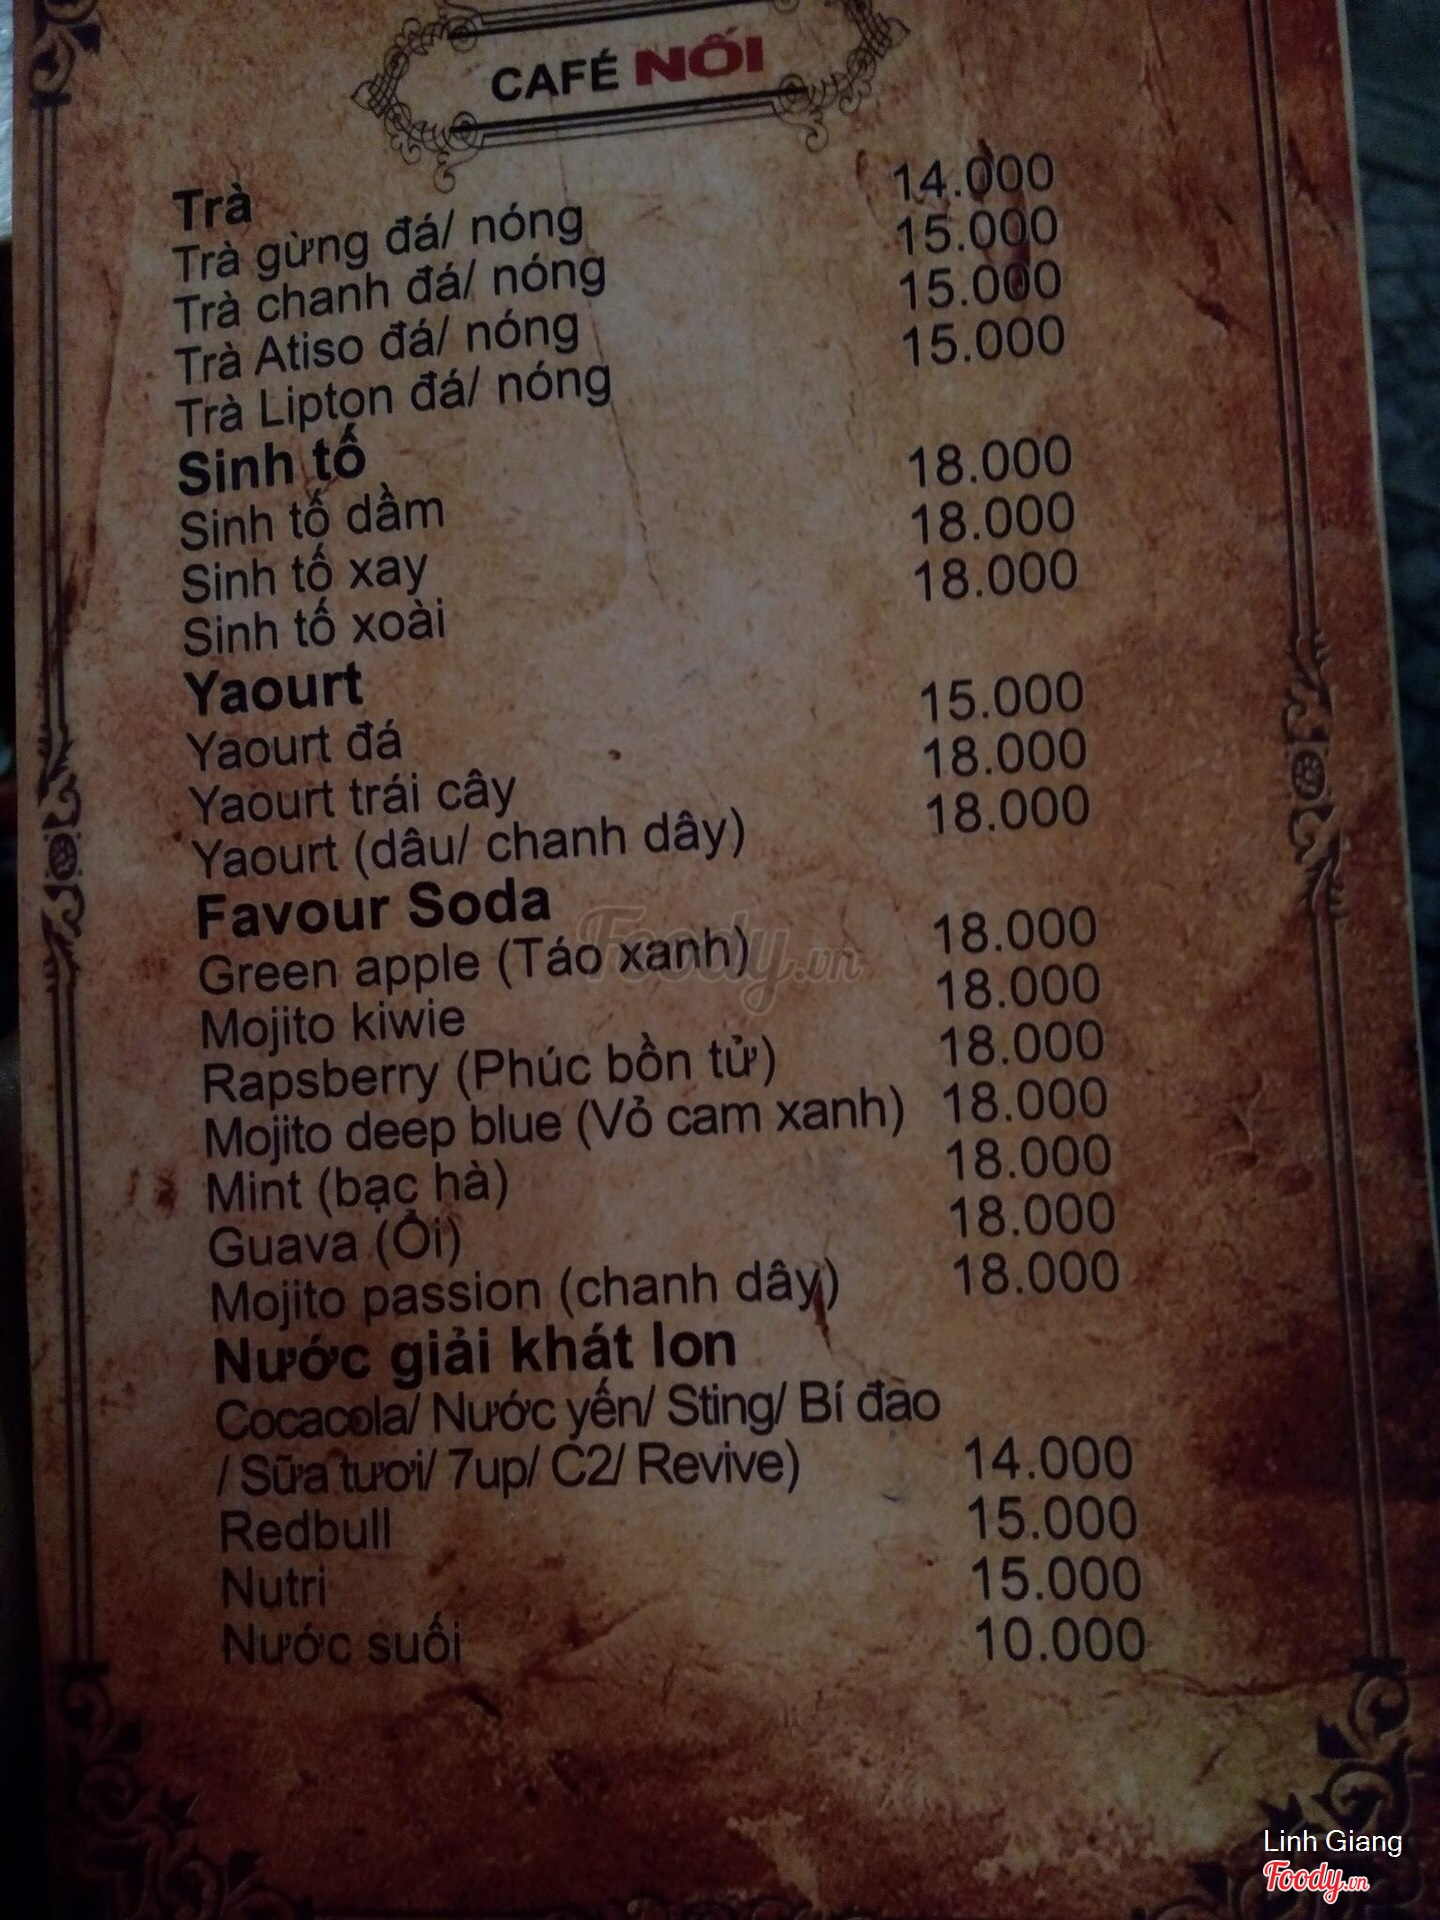 CAFÉ NỐI
Trà
Trà gừng đá/ nóng 14.000
Trà chanh đá/ nóng 15.000
Trà Atiso đá/ nóng 15.000
Trà Lipton đá/ nóng 15.000
Sinh tố
Sinh tố dầm 18.000
Sinh tố xay 18.000
Sinh tố xoài 18.000
Yaourt
Yaourt đá 15.000
Yaourt trái cây 18.000
Yaourt (dâu/ chanh dây) 18.000
Favour Soda
Green apple (Táo xanh) 18.000
Mojito kiwie 18.000
Rapsberry (Phúc bồn tử) 18.000
Mojito deep blue (Vỏ cam xanh) 18.000
Mint (bạc hà) 18.000
Guava (Ổi) 18.000
Mojito passion (chanh dây) 18.000
Nước giải khát lon
Cocacola/ Nước yến/ Sting/ Bí đao
/ Sữa tươi/ 7up/ C2/ Revive) 14.000
Redbull 15.000
Nutri 15.000
Nước suối 10.000
Foody.vn
Linh Giang
Foody.vn